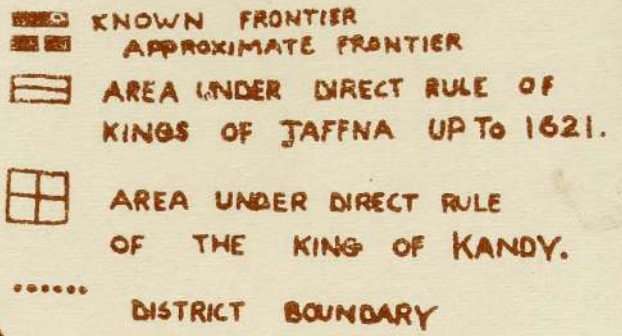 KNOWN FRONTIER
APPROXIMATE FRONTIER
AREA UNDER DIRECT RULE OF
KINGS OF JAFFNA UP TO 1621.
AREA UNDER DIRECT RULE
OF THE KING OF KANDY.
DISTRICT BOUNDARY